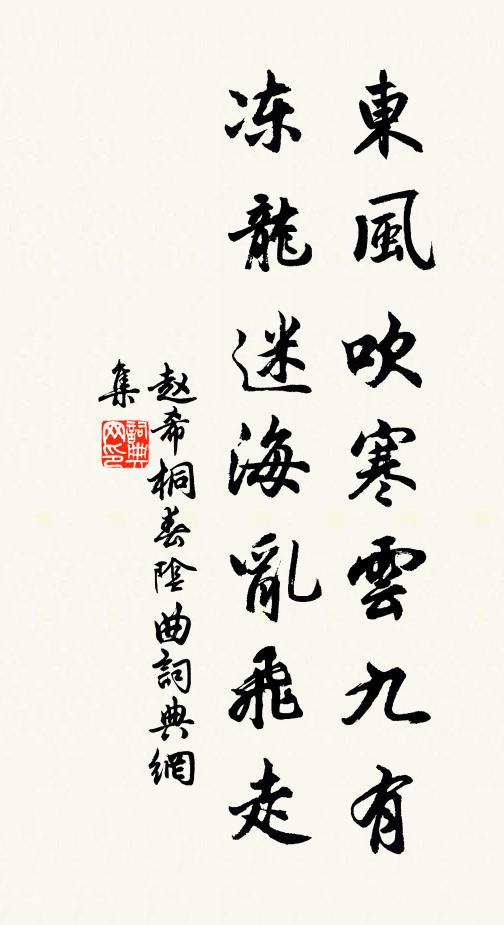 東風吹寒雲九有
冻龍迷海亂飛走
赵希桐春陰曲詞典網
集
詞典
网印